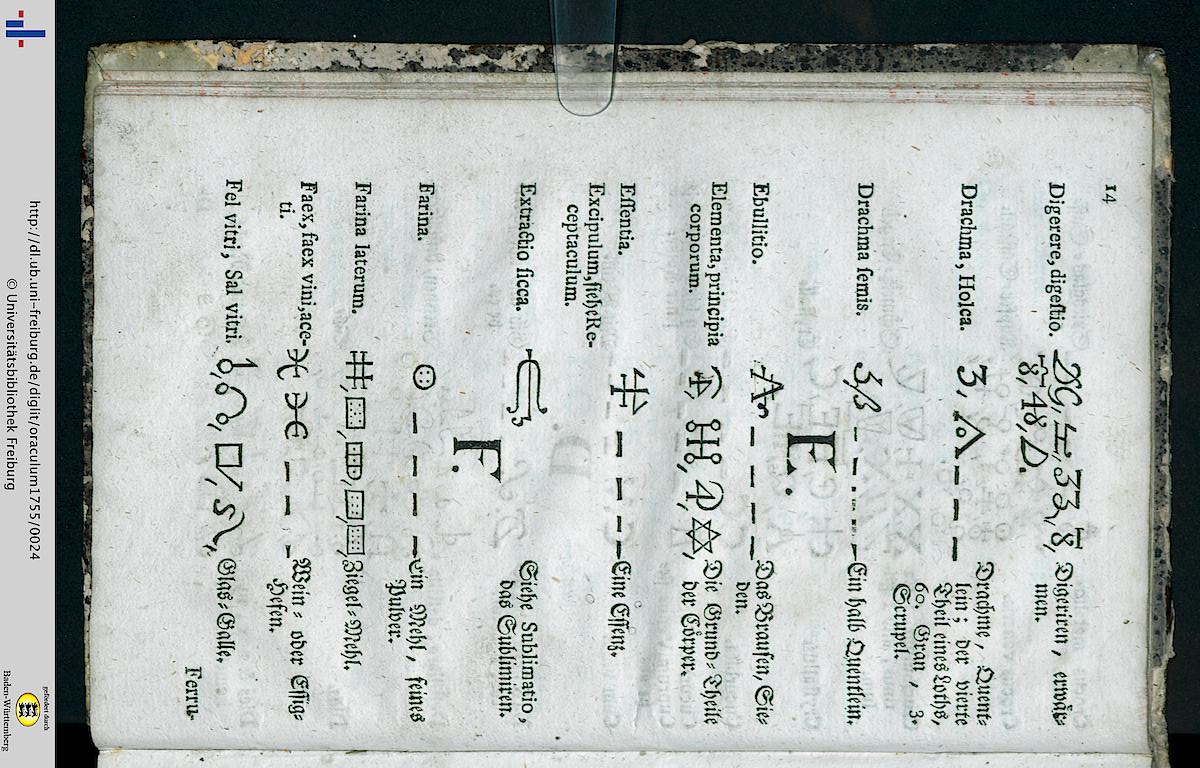 14
Digerere, digestio.
Digeriren, erwär-
men.
Drachma, Holca.
Drachme, Quent-
lein; der vierte
Theil eines Loths,
60. Gran, 3.
Scrupel.
Drachma semis.
Ein halb Quentlein.
E.
Ebullitio.
Das Brausen, Sie-
den.
Elementa, principia
corporum.
Die Grund-Theile
der Cörper.
Essentia.
Eine Essenz.
Excipulum, siehe Re-
ceptaculum.
Extractio sicca.
Siehe Sublimatio,
das Sublimiren.
F.
Farina.
Ein Mehl, feines
Pulver.
Farina laterum.
Ziegel-Mehl.
Faex, faex vini, ace-
ti.
Wein- oder Essig-
Hefen.
Fel vitri, Sal vitri.
Glas-Galle.
Ferru-
http://dl.ub.uni-freiburg.de/diglit/oraculum1755/0024
© Universitätsbibliothek Freiburg
gefördert durch
Baden-Württemberg